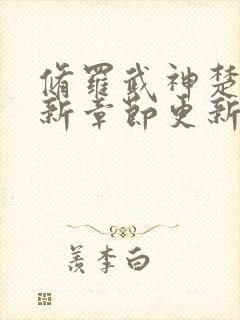 脩羅武神楚
新章節更新
羨李白